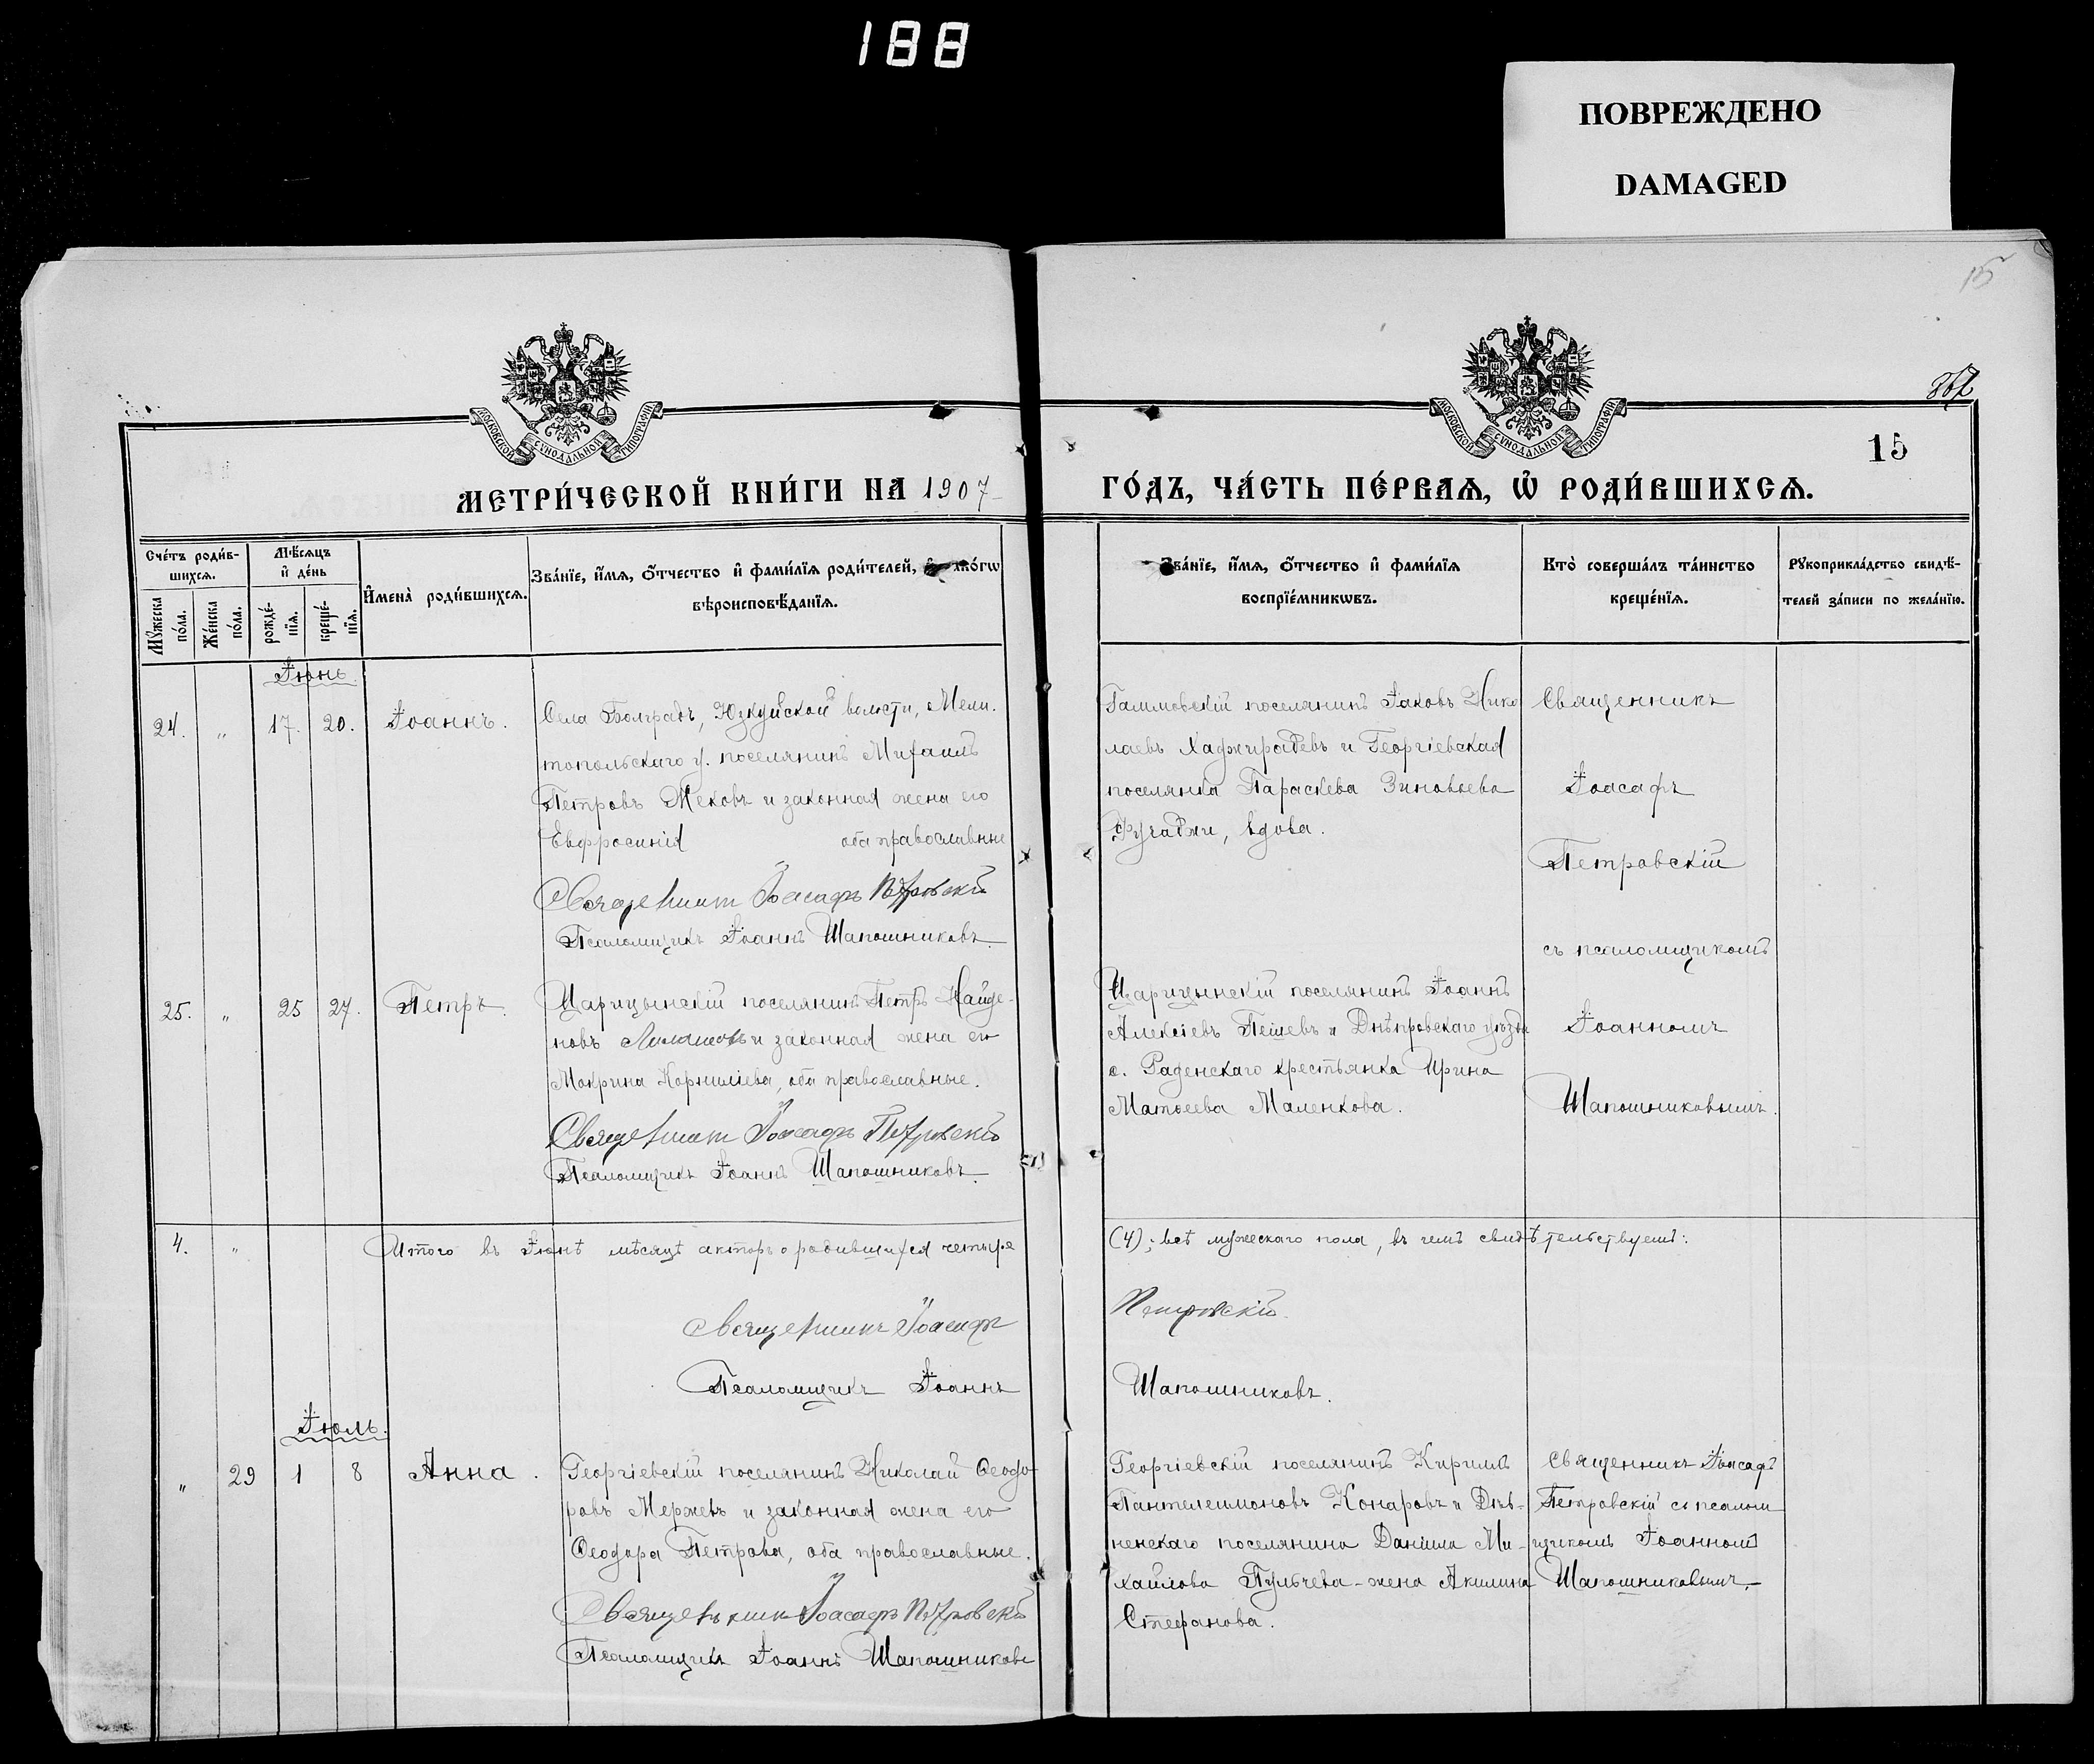 188
ПОВРЕЖДЕНО
DAMAGED
15
МОСКОВСКОЙ СѴНОДАЛЬНОЙ ТИПОГРАФІИ
МОСКОВСКОЙ СѴНОДАЛЬНОЙ ТИПОГРАФІИ
15
МЕТРИ́ЧЕСКОЙ КНИ́ГИ НА 1907
ГО́ДЪ, ЧА́СТЬ ПЕ́РВАѦ, Ѡ҆ РОДИ́ВШИХСѦ.
Сче́тъ роди́в-
шихсѧ.
Мꙋ́жеска
по́ла.
Же́нска
по́ла.
Мѣ́сѧцъ
и҆ де́нь
рожде́-
нїѧ.
креще́-
нїѧ.
И҆мена̀ роди́вшихсѧ.
Зва́нїе, и҆́мѧ, ѻ҆́тчество и҆ фами́лїѧ роди́телей, и҆ како́гѡ
вѣроисповѣ́данїѧ.
Зва́нїе, и҆́мѧ, ѻ҆́тчество и҆ фами́лїѧ
воспрїе́мникѡвъ.
Кто̀ соверша́лъ та́инство
креще́нїѧ.
Рꙋкоприкла́дство свидѣ́-
телей за́писи по жела́нїю.
Іюнь.
24. „ 17. 20. Іоаннъ.
Села Болградъ, Юзкуйской волости, Мели-
топольскаго у. поселянинъ Михаилъ
Петровъ Жековъ и законная жена его
Евфросинія оба православные
Священникъ Іоасафъ Петровскій
Псаломщикъ Іоаннъ Шапошниковъ.
поселянинъ Іаковъ Нико
лаевъ Хаджирадевъ и Георгіевская
поселянка Параскева Зиновьева
вдова.
Священникъ
Іоасафъ
Петровскій
съ псаломщикомъ
Іоанномъ
Шапошниковымъ.
25. „ 25 27. Петръ.
Царицынскій поселянинъ Петръ Найде-
новъ и законная жена его
Макрина Корниліева, оба православные.
Священникъ Іоасафъ Петровскій
Псаломщикъ Іоаннъ Шапошниковъ.
Царицынскій поселянинъ Іоаннъ
Алексіевъ Пешевъ и Днѣпровскаго уѣзда
с. Раденскаго крестьянка Ирина
Матѳеева Маленкова.
4. „ Итого въ Іюнѣ мѣсяцѣ актовъ о родившихся четыре
(4); всѣ мужескаго пола, въ чемъ свидѣтельствуемъ:
Священникъ Іоасафъ
Петровскій.
Псаломщикъ Іоаннъ
Шапошниковъ.
Іюль.
„ 29 1 8 Анна.
Георгіевскій поселянинъ Николай Ѳеодо-
ровъ Мержевъ и законная жена его
Ѳеодора Петрова, оба православные.
Священникъ Іоасафъ Петровскій
Псаломщикъ Іоаннъ Шапошниковъ
Георгіевскій поселянинъ Кириллъ
Пантелеимоновъ Конаровъ и Дѣв-
ненскаго поселянина Даніила Ми-
хайлова Пульчева - жена Акилина
Стефанова.
Священникъ Іоасафъ
Петровскій съ псалом
щикомъ Іоанномъ
Шапошниковымъ.